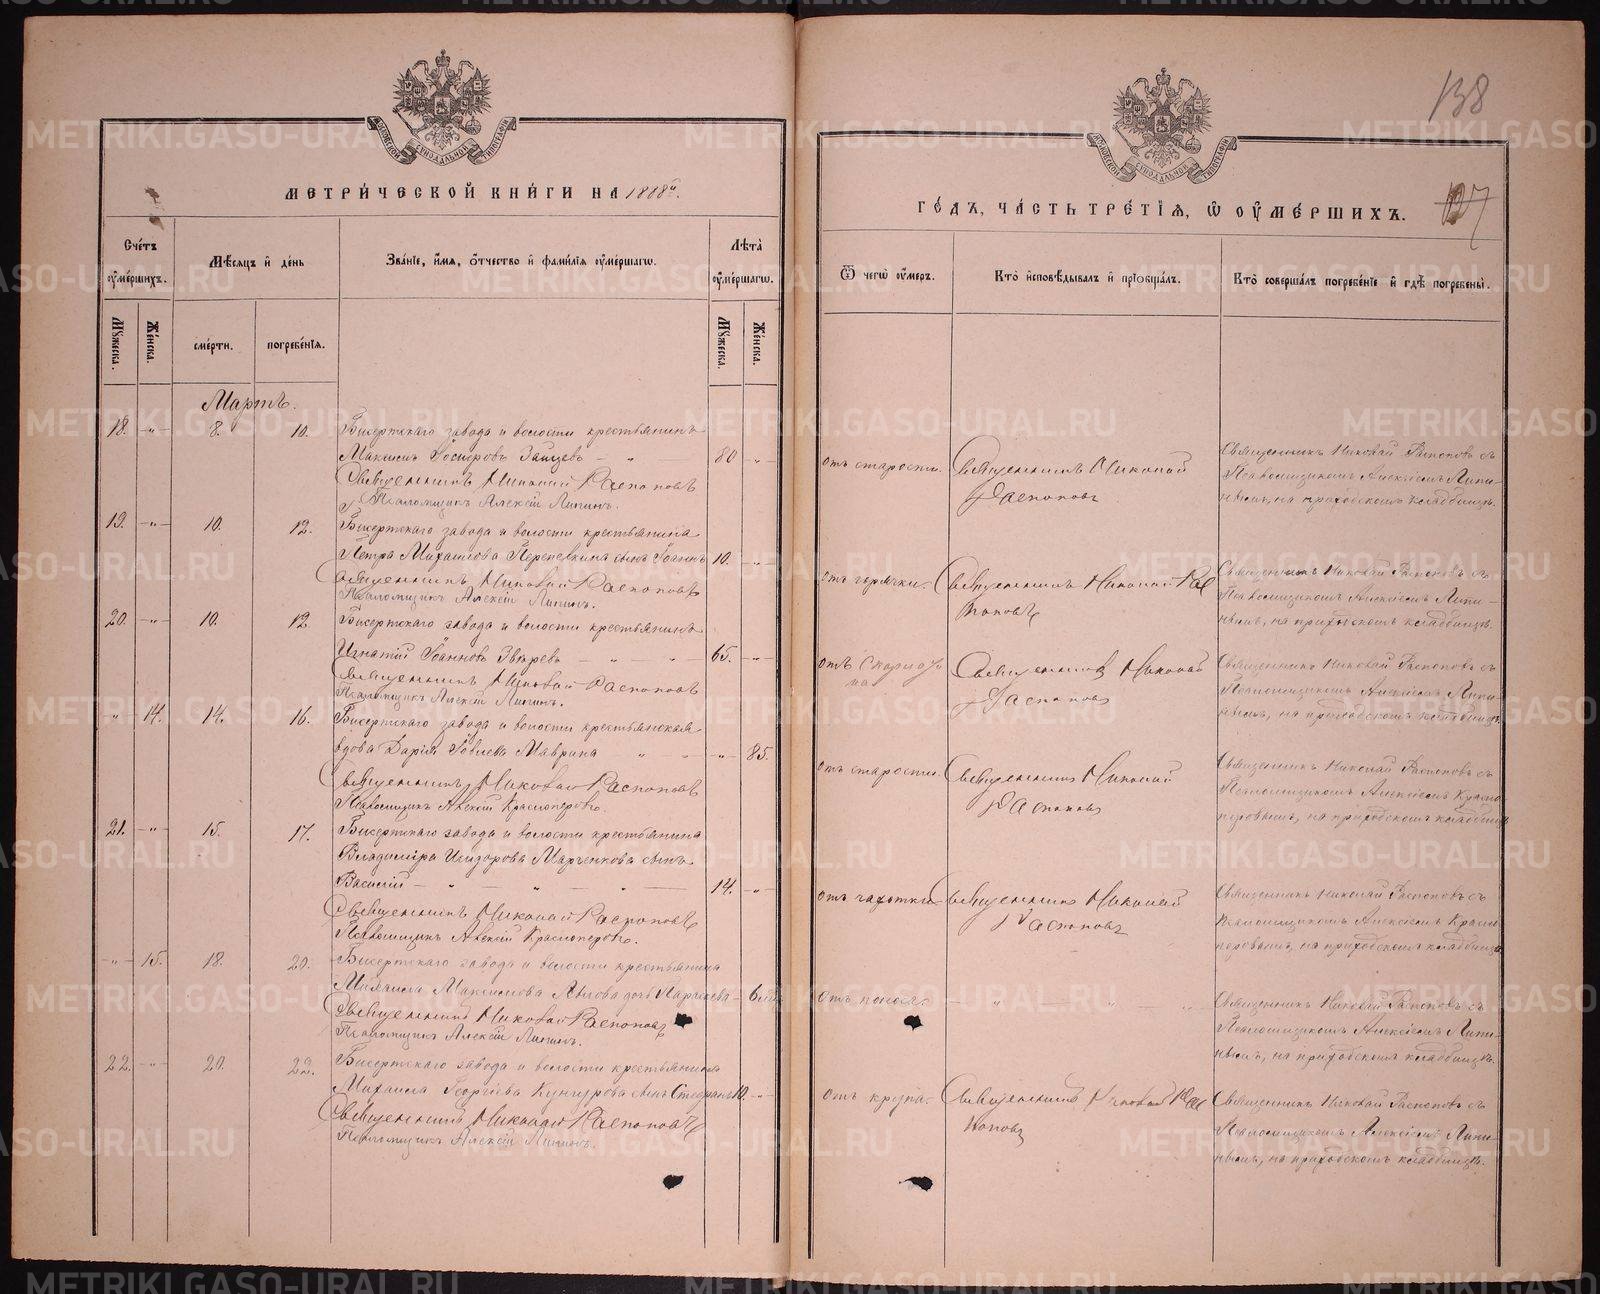 138
127
МЕТРИ́ЧЕСКОЙ КНИ́ГИ НА 1888й.
ГО́ДЪ, ЧА́СТЬ ТРЕ́ТІѦ, Ѡ ОУМЕ́РШИХЪ.
Сче́тъ оумершихъ.
Мѣ́сяцъ и де́нь
Зва́ніе, и́мя, о́тчество и фами́лія оуме́ршагω.
Лѣта̀ оуме́ршагω.
Мужеска.
Же́нска.
сме́рти.
погребе́нія.
Мужеска.
Же́нска.
Ѿ чегѡ̀ оу́меръ.
Кто̀ исповѣ́дывалъ и пріобща́лъ.
Кто̀ соверша́лъ погребе́ніе и гдѣ̀ погребены̀.
Мартъ.
18. - „ - 8. 10. Бисертскаго завода и волости крестьянинъ
Максимъ Зайцевъ - „ - 80 - „ -
Священникъ Николай Распоповъ
Псаломщикъ Алексій Липинъ.
отъ старости. Священникъ Николай
Распоповъ
Священникъ Николай Распоповъ съ
Псаломщикомъ Алексіемъ Липи-
нымъ, на приходскомъ кладбищѣ.
19. - „ - 10. 12. Бисертскаго завода и волости крестьянина
Петра Михаилова Перепелкина сынъ Іоаннъ 10. - „ -
Священникъ Николай Распоповъ
Псаломщикъ Алексій Липинъ.
отъ горячки. Священникъ Николай Рас
поповъ
Священникъ Николай Распоповъ съ
Псаломщикомъ Алексіемъ Липи-
нымъ, на приходскомъ кладбищѣ.
20. - „ - 10. 12. Бисертскаго завода и волости крестьянинъ
Игнатій Іоанновъ Звѣревъ - „ - „ - 65. - „ -
Священникъ Николай Распоповъ
Псаломщикъ Алексій Липинъ.
отъ
Священникъ Николай
Распоповъ
Священникъ Николай Распоповъ съ
Псаломщикомъ Алексіемъ Липи-
нымъ, на приходскомъ кладбищѣ.
- „ - 14. 14. 16. Бисертскаго завода и волости крестьянская
вдова Дарія Іовлева Маврина „ „ - „ - 85.
Священникъ Николай Распоповъ
Псаломщикъ Алексій Красноперовъ.
отъ старости. Священникъ Николай
Распоповъ
Священникъ Николай Распоповъ съ
Псаломщикомъ Алексіемъ Красно-
перовымъ, на приходскомъ кладбищѣ.
21. - „ - 15. 17. Бисертскаго завода и волости крестьянина
Владиміра Исидорова Мартенкова сынъ
Василій - „ - „ - „ - 14. - „ -
Священникъ Николай Распоповъ
Псаломщикъ Алексій Красноперовъ.
отъ чахотки. Священникъ Николай
Распоповъ
Священникъ Николай Распоповъ съ
Псаломщикомъ Алексіемъ Красно-
перовымъ, на приходскомъ кладбищѣ.
- „ - 15. 18. 20. Бисертскаго завода и волости крестьянина
Михаила Максимова дочь - 6 м.
Священникъ Николай Распоповъ
Псаломщикъ Алексій Липинъ.
отъ поноса. - „ - „ - „
Священникъ Николай Распоповъ съ
Псаломщикомъ Алексіемъ Липи-
нымъ, на приходскомъ кладбищѣ.
22. - „ - 20. 22. Бисертскаго завода и волости крестьянина
Михаила Георгіева Кунгурова сынъ Стефанъ 10. - „ -
Священникъ Николай Распоповъ
Псаломщикъ Алексій Липинъ.
отъ крупа. Священникъ Николай Рас
поповъ
Священникъ Николай Распоповъ съ
Псаломщикомъ Алексіемъ Липи-
нымъ, на приходскомъ кладбищѣ.
METRIKI.GASO-URAL.RU